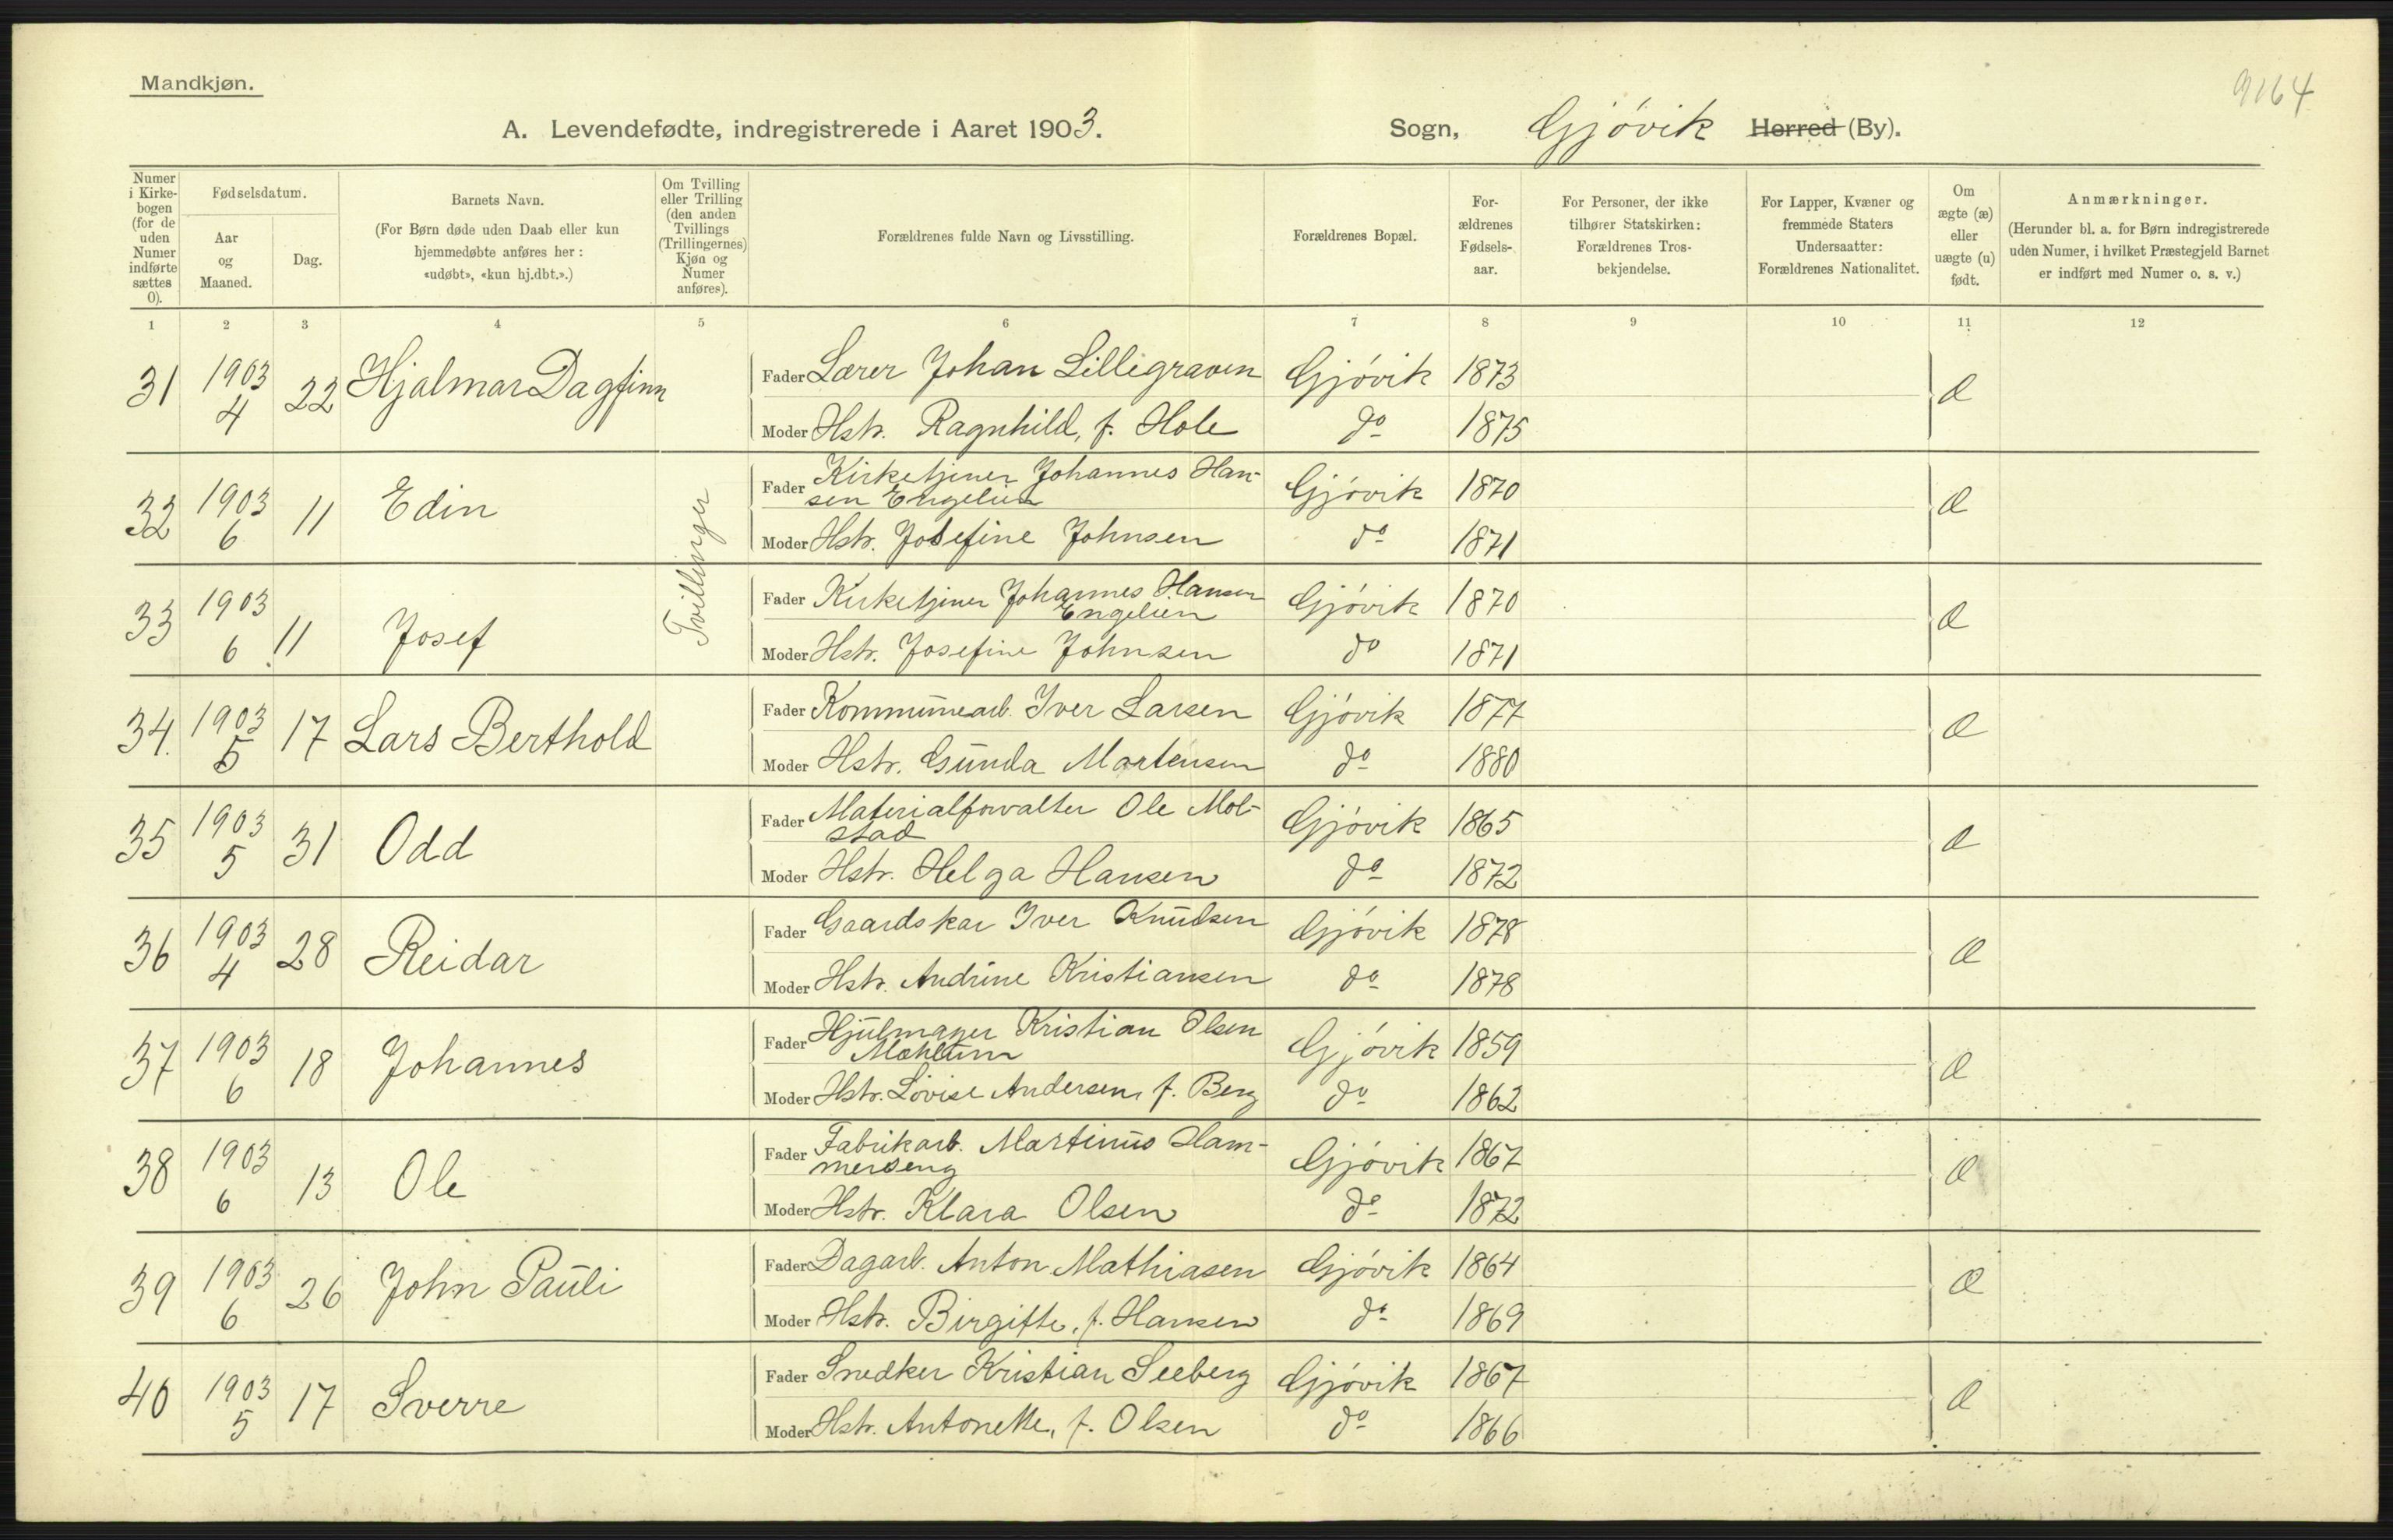 Mandkjøn.
9164
A. Levendefødte, indregistrerede i Aaret 1903. Sogn, Gjøvik Herred (By).
Numer i Kirkebogen (for de uden Numer indførte sættes 0).
Fødselsdatum.
Aar og Maaned.
Dag.
Barnets Navn.
(For Børn døde uden Daab eller kun hjemmedøbte anføres her: «udøbt», «kun hj.dbt.».)
Om Tvilling eller Trilling (den anden Tvillings (Trillingernes) Kjøn og Numer anføres).
Forældrenes fulde Navn og Livsstilling.
Forældrenes Bopæl.
For-ældrenes Fødsels-aar.
For Personer, der ikke tilhører Statskirken: Forældrenes Tros-bekjendelse.
For Lapper, Kvæner og fremmede Staters Undersaatter: Forældrenes Nationalitet.
Om ægte (æ) eller uægte (u) født.
Anmærkninger.
(Herunder bl. a. for Børn indregistrerede uden Numer, i hvilket Præstegjeld Barnet er indført med Numer o. s. v.)
1 2 3 4 5 6 7 8 9 10 11 12
31 1903 4 22 Hjalmar Dagfinn Fader Lærer Johan Lilligraven Gjøvik 1873 Æ
Moder Hstr. Ragnhild, f. Hole do 1875
32 1903 6 11 Edin Tvillinger Fader Kirketjener Johannes Han-
sen Engelien Gjøvik 1870 Æ
Moder Hstr. Josefine Johnsen do 1871
33 1903 6 11 Josef Fader Kirketjener Johannes Hansen
Engelien Gjøvik 1870 Æ
Moder Hstr. Josefine Johnsen do 1871
34. 1903 5 17 Lars Berthold Fader Kommunearb. Iver Larsen Gjøvik 1877 Æ
Moder Hstr. Gunda Martensen do 1880
35 1903 5 31 Odd Fader Materialforvalter Ole Mol-
stad Gjøvik 1865 Æ
Moder Hstr. Helga Hansen do 1872
36 1903 4 28 Reidar Fader Gaardskar Iver Knudsen Gjøvik 1878 Æ
Moder Hstr. Andrine Kristiansen do 1878
37 1903 6 18 Johannes Fader Hjulmager Kristian Olsen
Mæhlum Gjøvik 1859 Æ
Moder Hstr. Lovise Andersen, f. Berg do 1862
38 1903 6 13 Ole Fader Fabrikarb. Martinus Ham-
merseng Gjøvik 1867 Æ
Moder Hstr. Klara Olsen do 1872
39 1903 6 26 John Pauli Fader Dagarb. Anton Mathiasen Gjøvik 1864 Æ
Moder Hstr. Birgitte, f. Hansen do 1869
40 1903 5 17 Sverre Fader Snedker Kristian Seeberg Gjøvik 1867 Æ
Moder Hstr. Antonette, f. Olsen do 1866